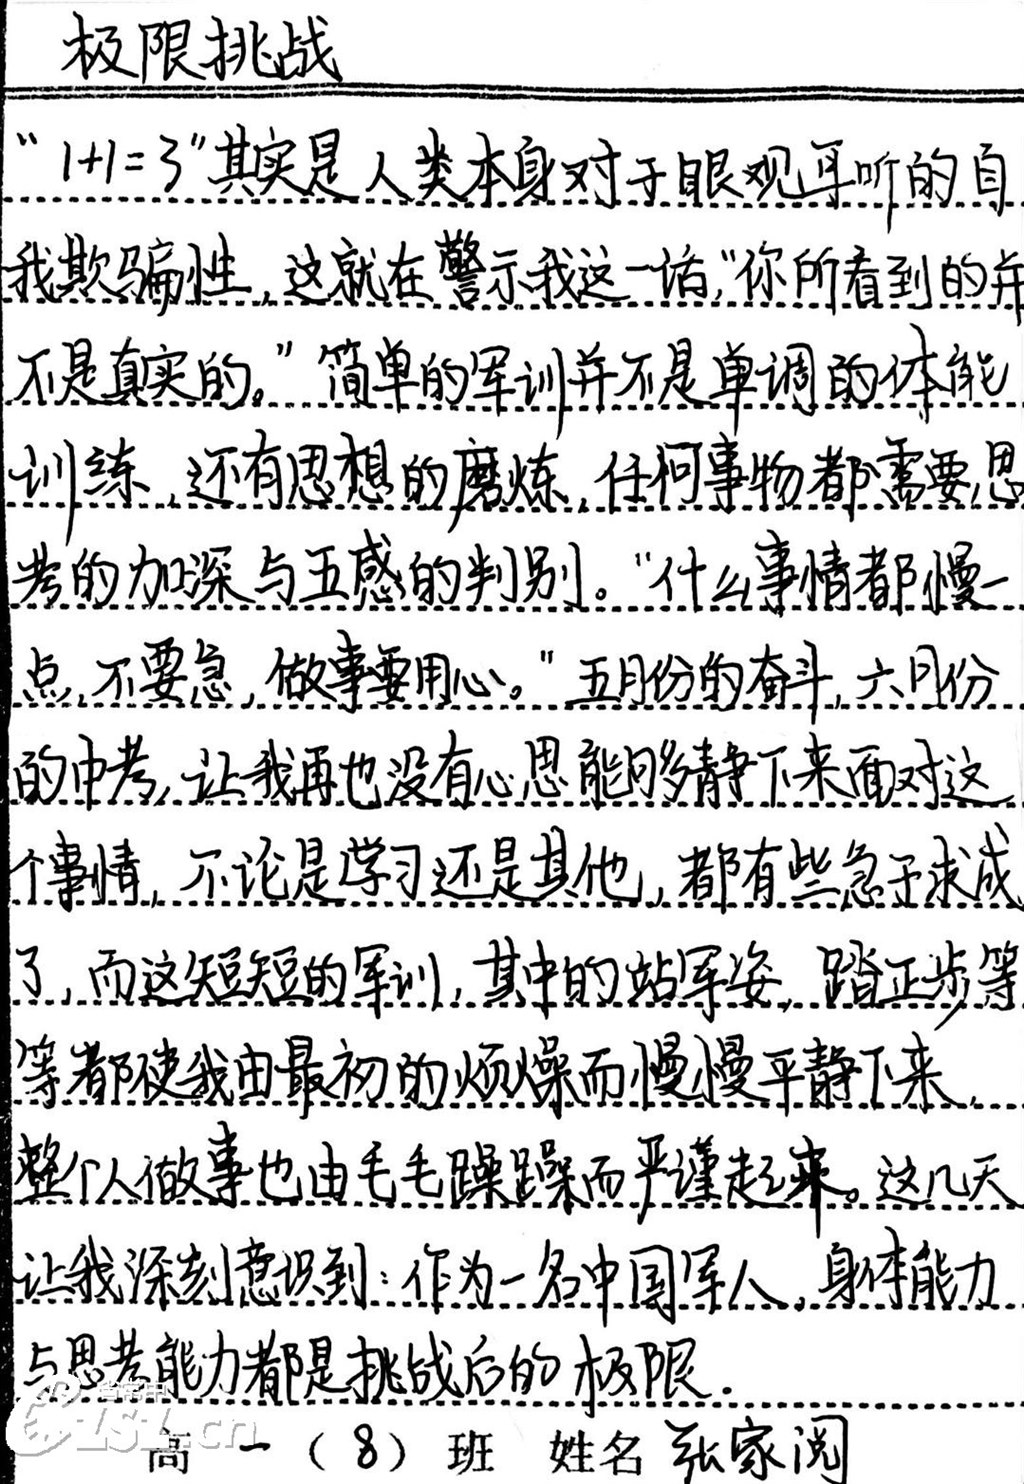 极限挑战
“1+1=3”其实是人类本身对于眼观耳听的自
我欺骗性,这就在警示我这一话,“你所看到的并
不是真实的。”简单的军训并不是单调的体能
训练,还有思想的磨炼,任何事物都需要思
考的加深与五感的判别。“什么事情都慢一
点,不要急,做事要用心。”五月份的奋斗,六月份
的中考,让我再也没有心思能够静下来面对这
个事情,不论是学习还是其他,都有些急于求成
了,而这短短的军训,其中的站军姿,踏正步等
等都使我由最初的烦燥而慢慢平静下来,
整个人做事也由毛毛躁躁而严谨起来。这几天
让我深刻意识到:作为一名中国军人,身体能力
与思考能力都是挑战后的极限.
高一(8)班 姓名 张家阅